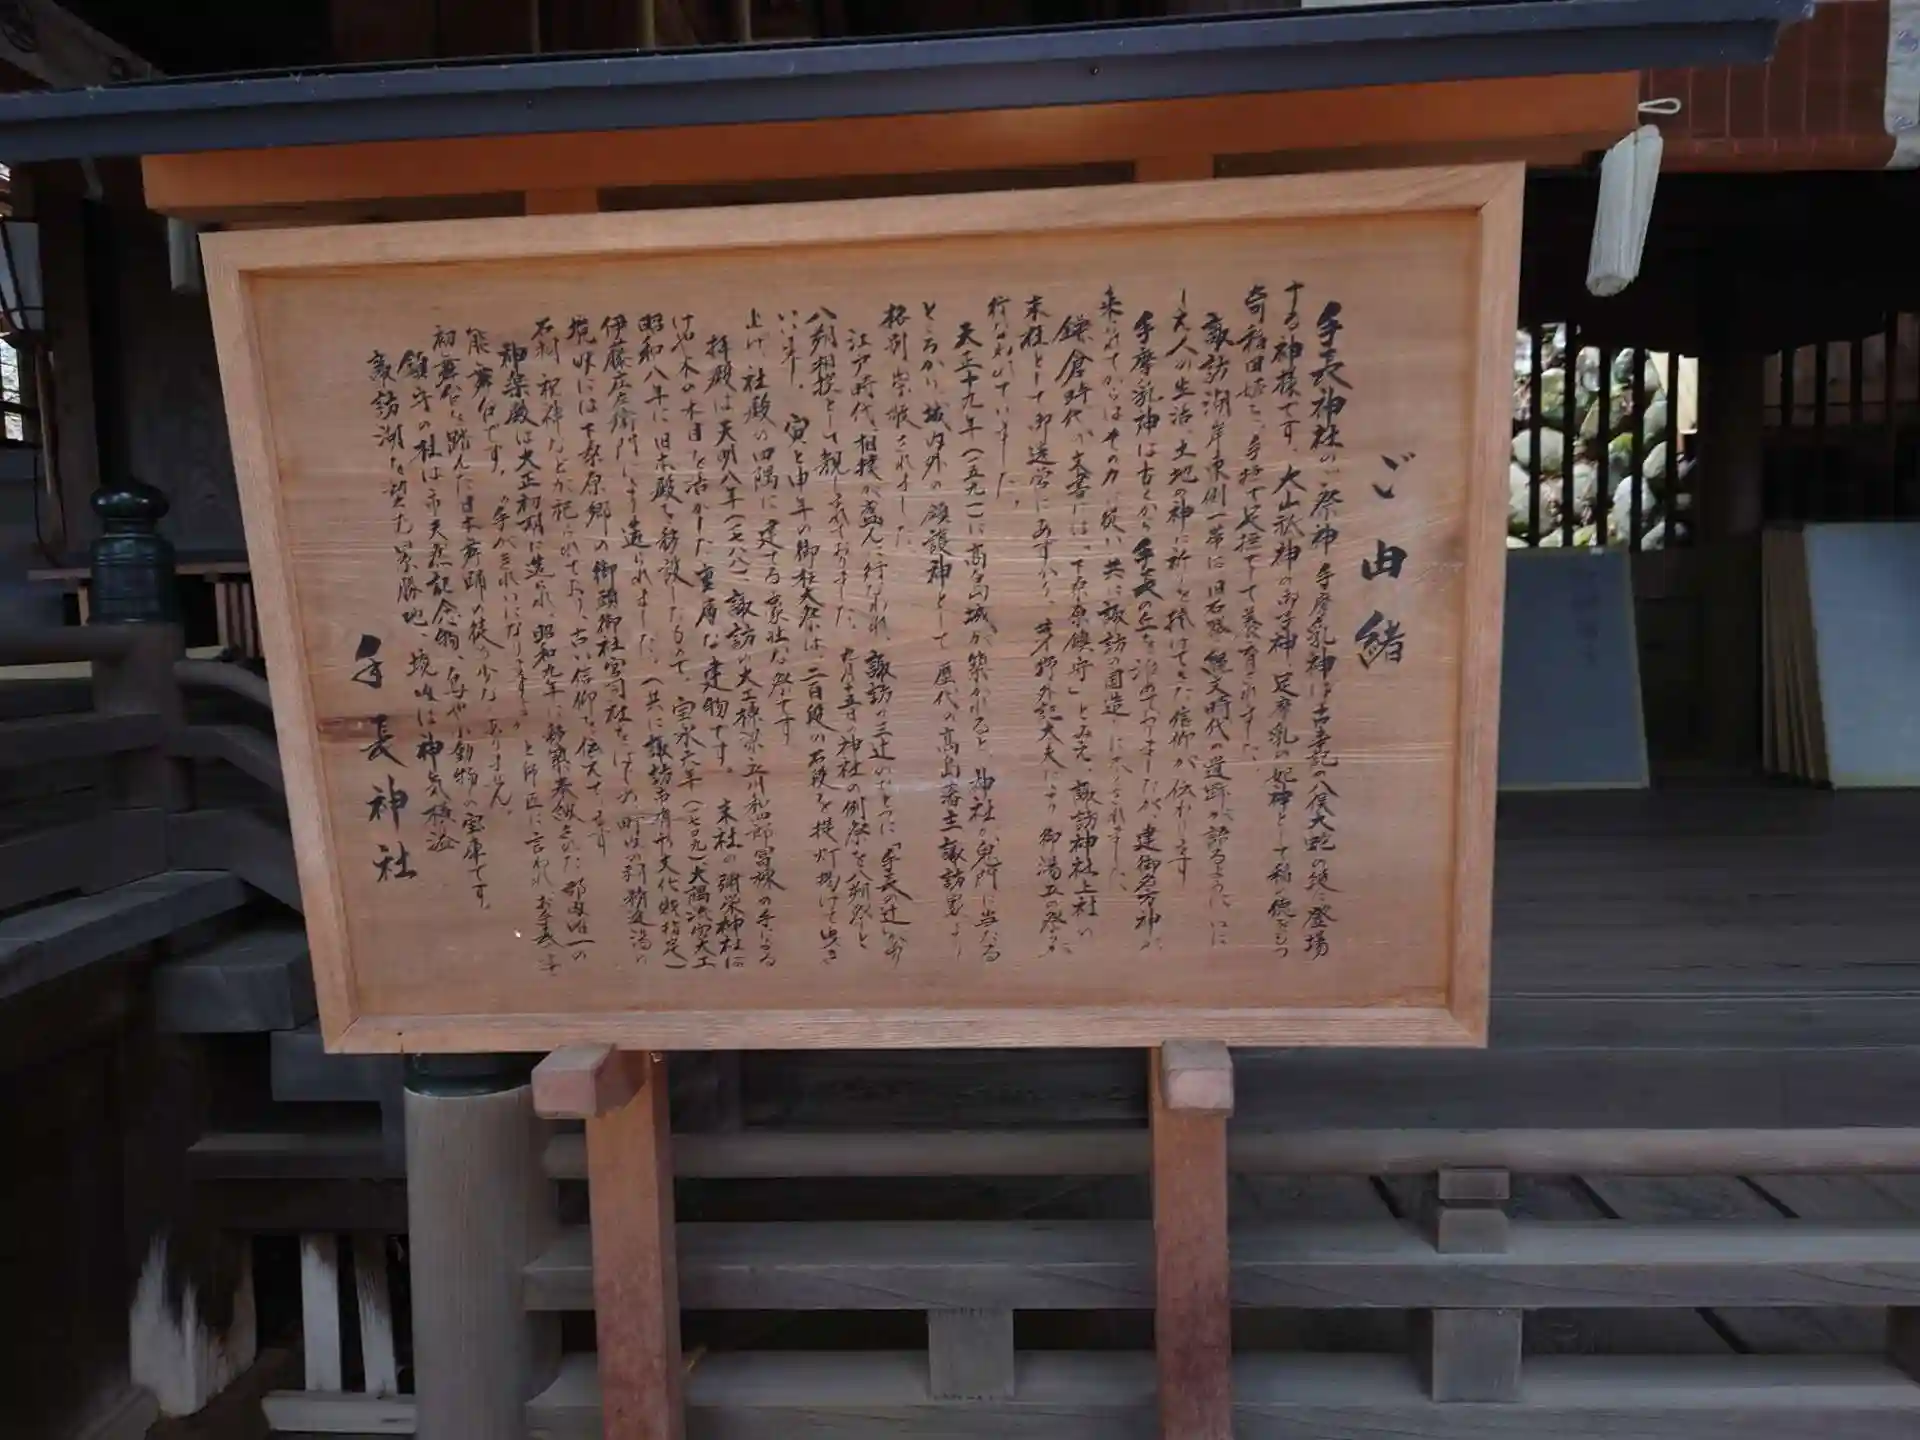 ご由緒
手長神社のご祭神 手摩乳神は古事記の八俣大蛇の段に登場
する神様です。大山祇神の御子神、足摩乳の妃神として稲
奇稲田姫を、手撫で足撫でして養育されました。
諏訪湖岸東側一帯に旧石器縄文時代の遺跡が語るように
人の生活、土地の神に祈りを捧げてきた信仰が伝わります
手摩乳神は古くから手長の丘を治めておりましたが、建御名方神が
来られてからはその力に従い共に諏訪の国造りに
鎌倉時代の文書には、「下桑原鎮守」とみえ、諏訪神社上社の
末社として御造営にあずかり、茅野外記大夫により御湯立の祭が
行なわれていました。
天正十九年(一五九一)に高島城が築かれると神社が鬼門に当たる
ところから城内外の鎮護神として歴代の高島藩主諏訪男より
格別崇敬されました。
江戸時代、相撲が盛んに行なわれ、諏訪の三辻のひとつに「手長の辻」
八朔相撲として親しまれておりました。九月十五日の神社の例祭を八朔祭と
いいます。寅と申年の御柱大祭には二百段の石段を提灯掲げて曳き
上げ、社殿の四隅に建する豪壮な祭です
拝殿は天明八年(一七八八)諏訪の大工棟梁立川和四郎冨棟の手になる
けやき木の木目を活かした重厚な建物です。末社の弥栄神社は
昭和八年に旧本殿を移設したもので、宝永六年(一七〇九)大隅流宮大工
伊藤庄左衛門により造られました。(共に諏訪市有形文化財指定)
境内には下桑原郷の御頭御社宮司社をはじめ町内の
石祠 祝神などが祀られており、古い信仰を伝えています
神楽殿は大正初期に造られ、昭和九年に移築奉納された郡内唯一の
能舞台です。の手がきれいになりますよう と師匠に言われ、お手長さま
初舞台を踏んだ日本舞踊の徒も少なくありません。
鎮守の杜は市天然記念物、鳥や小動物の宝庫です。
諏訪湖を望む景勝地、境内は神気横溢
手長神社